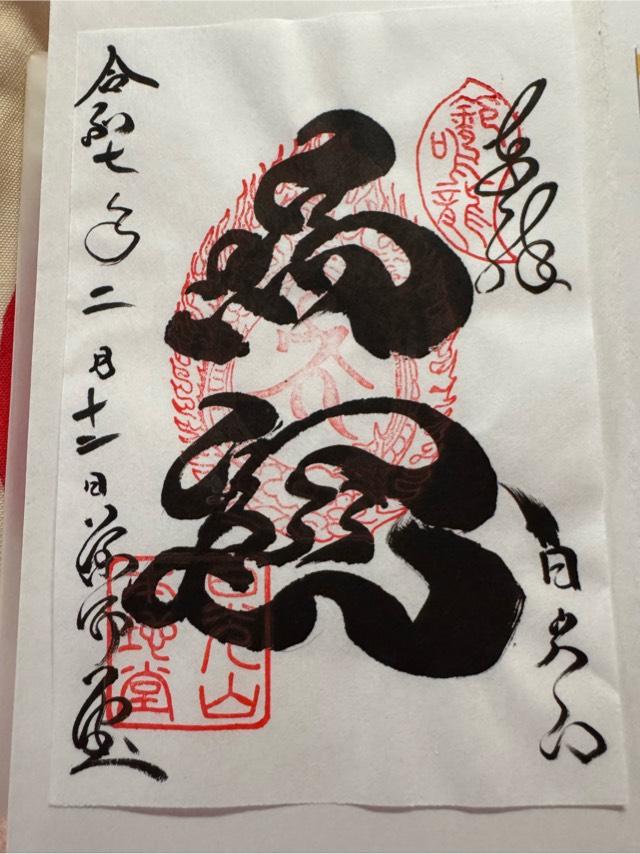 奉拝
日光山
鳴龍
令和七年二月十二日 薬師堂
日光山
本地堂